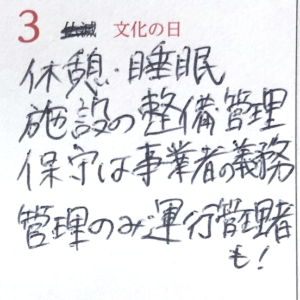 3 文化の日
休憩・睡眠
施設の整備管理
保守は事業者の義務
管理のみ運行管理者
も!